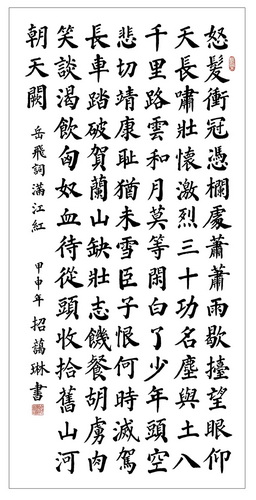 怒髮衝冠憑欄處蕭蕭雨歇擡望眼仰
天長嘯壯懷激烈三十功名塵與土八
千里路雲和月莫等閑白了少年頭空
悲切靖康恥猶未雪臣子恨何時滅駕
長車踏破賀蘭山缺壯志饑餐胡虜肉
笑談渴飲匈奴血待從頭收拾舊山河
朝天闕
岳飛詞滿江紅
甲申年招藹琳書